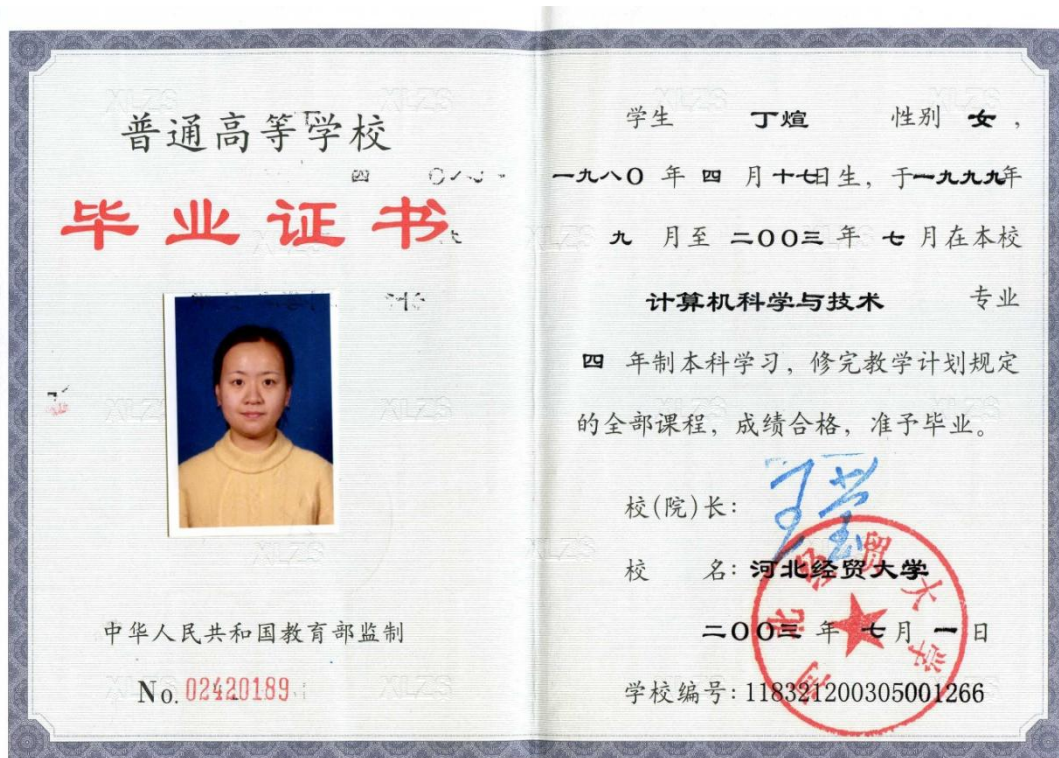 普通高等学校
毕业证书
中华人民共和国教育部监制
No. 02420189
学生 丁煊 性别 女，
一九八〇 年 四 月 十七日生，于一九九九年
九 月至 二〇〇三 年 七 月在本校
计算机科学与技术 专业
四 年制本科学习，修完教学计划规定
的全部课程，成绩合格，准予毕业。
校(院)长：
校 名：河北经贸大学
二〇〇三 年 七 月 一 日
学校编号：118321200305001266
河北经贸大学
XLZS